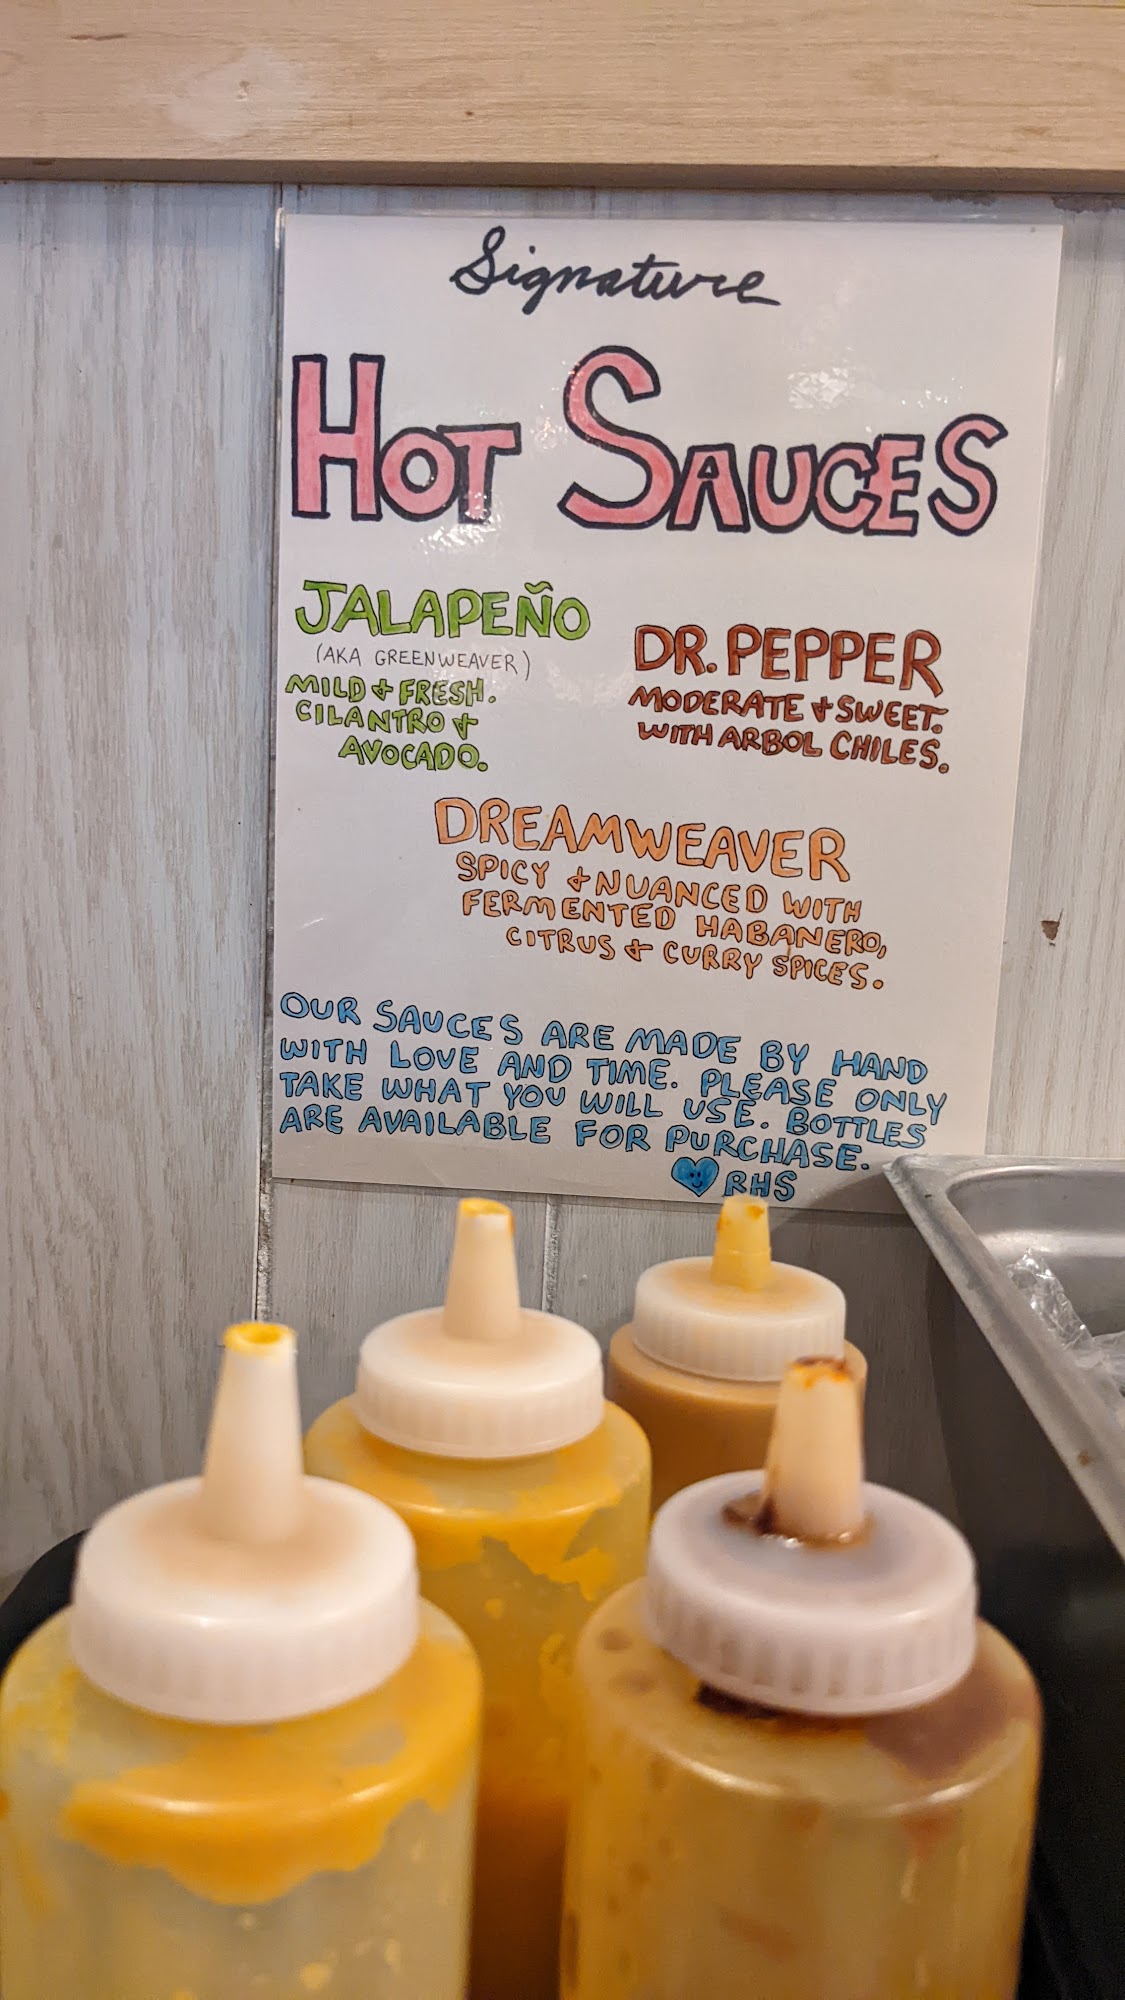 Signature
HOT SAUCES
JALAPEÑO
(AKA GREENWEAVER)
MILD & FRESH.
CILANTRO &
AVOCADO.
DR. PEPPER
MODERATE & SWEET.
WITH ARBOL CHILES.
DREAMWEAVER
SPICY & NUANCED WITH
FERMENTED HABANERO,
CITRUS & CURRY SPICES.
OUR SAUCES ARE MADE BY HAND
WITH LOVE AND TIME. PLEASE ONLY
TAKE WHAT YOU WILL USE. BOTTLES
ARE AVAILABLE FOR PURCHASE.
RHS